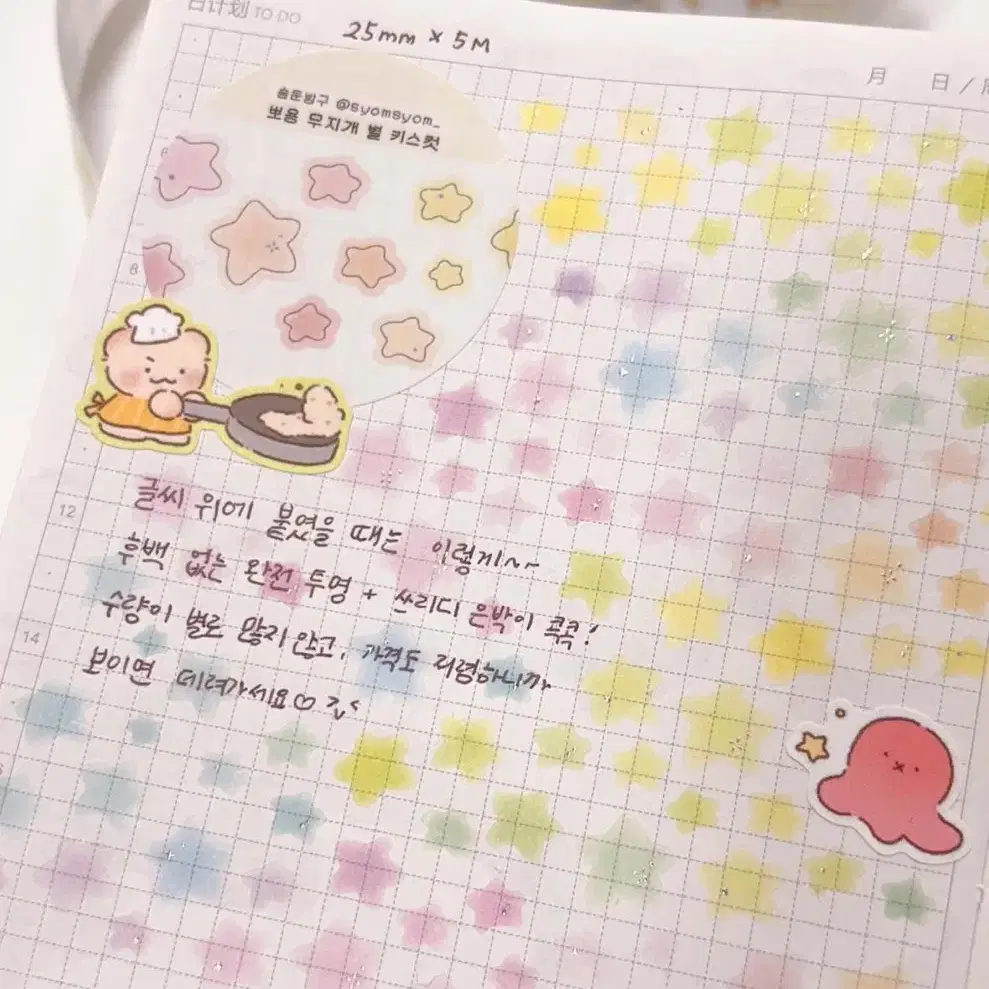 日计划 TO DO
25mm × 5M
月 日 /
숨둔방구 @syomsyom_
뽀용 무지개 별 키스컷
8
12
글씨 위에 붙였을 때는 이렇게~~
후백 없는 완전 투명 + 쓰리디 은박이 콕콕!
수량이 별로 많지 않고, 가격도 리렴하니까
14
보이면 데려가세요♡